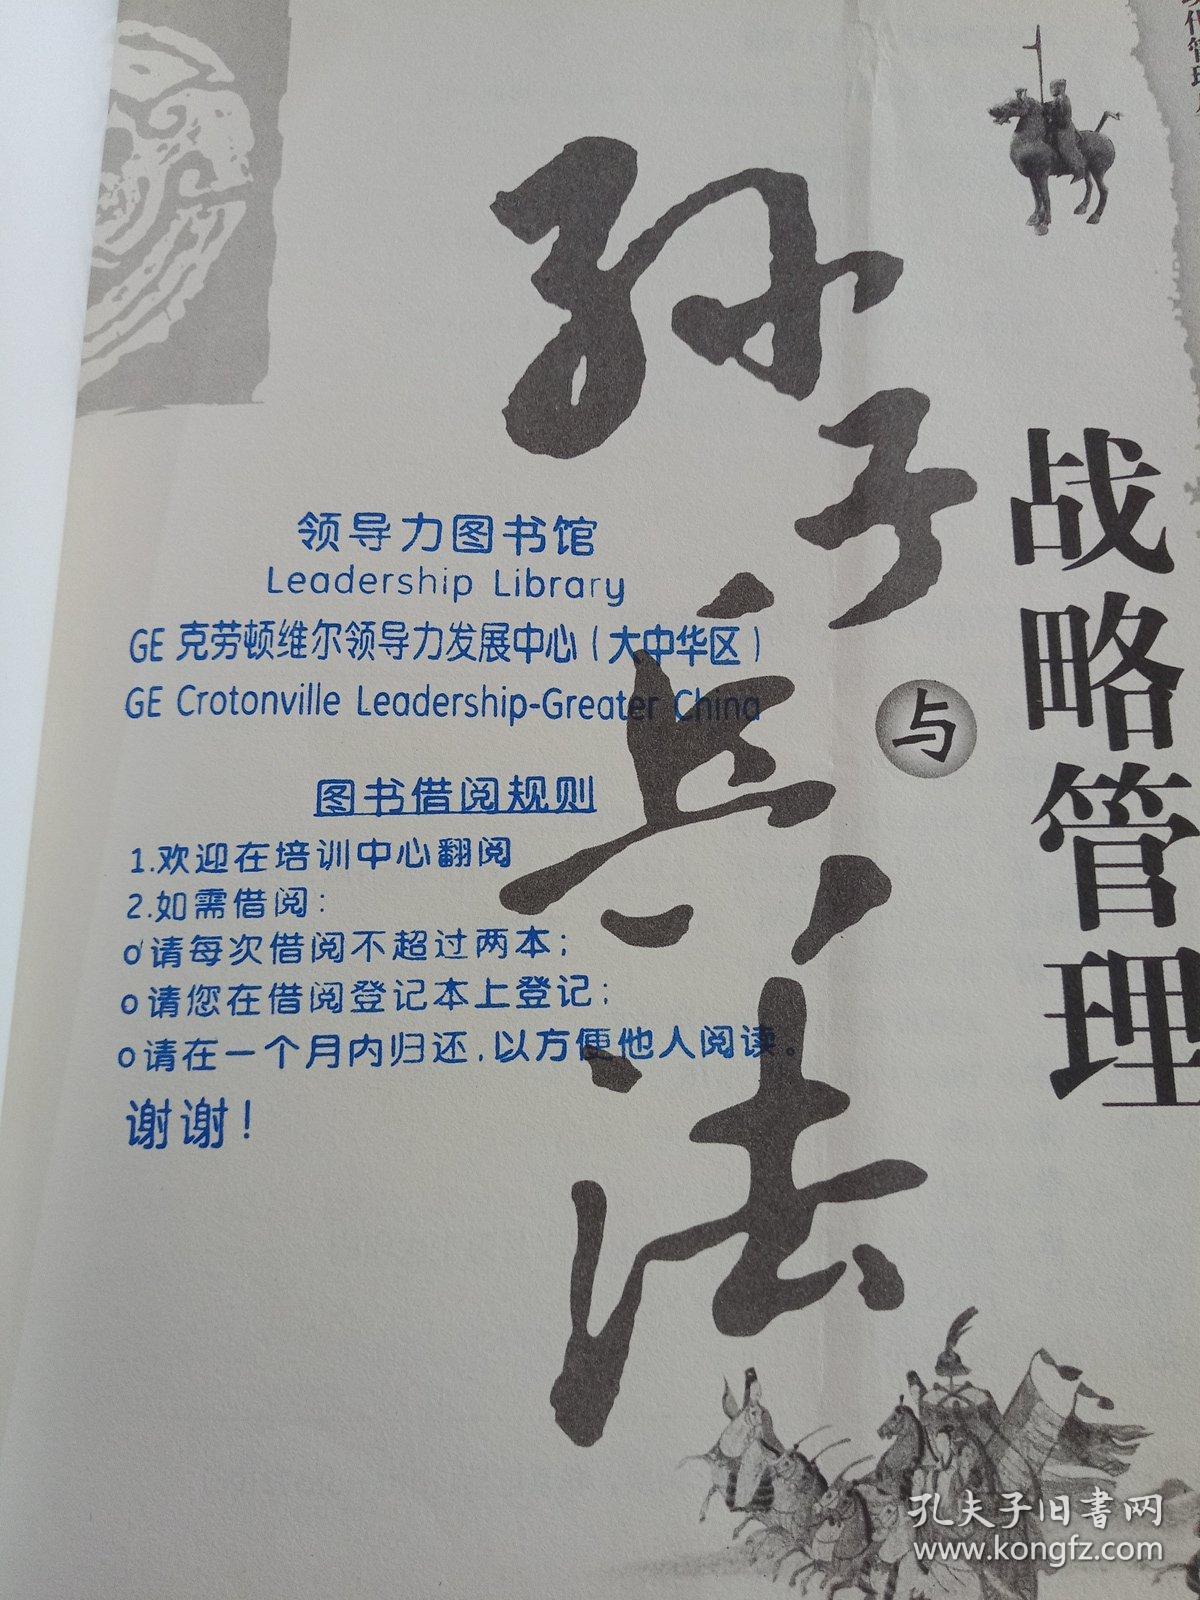 孙子兵法
与
战略管理
领导力图书馆
Leadership Library
GE 克劳顿维尔领导力发展中心（大中华区）
GE Crotonville Leadership-Greater China
图书借阅规则
1.欢迎在培训中心翻阅
2.如需借阅：
o请每次借阅不超过两本；
o请您在借阅登记本上登记；
o请在一个月内归还，以方便他人阅读。
谢谢！
孔夫子旧書网
www.kongfz.com